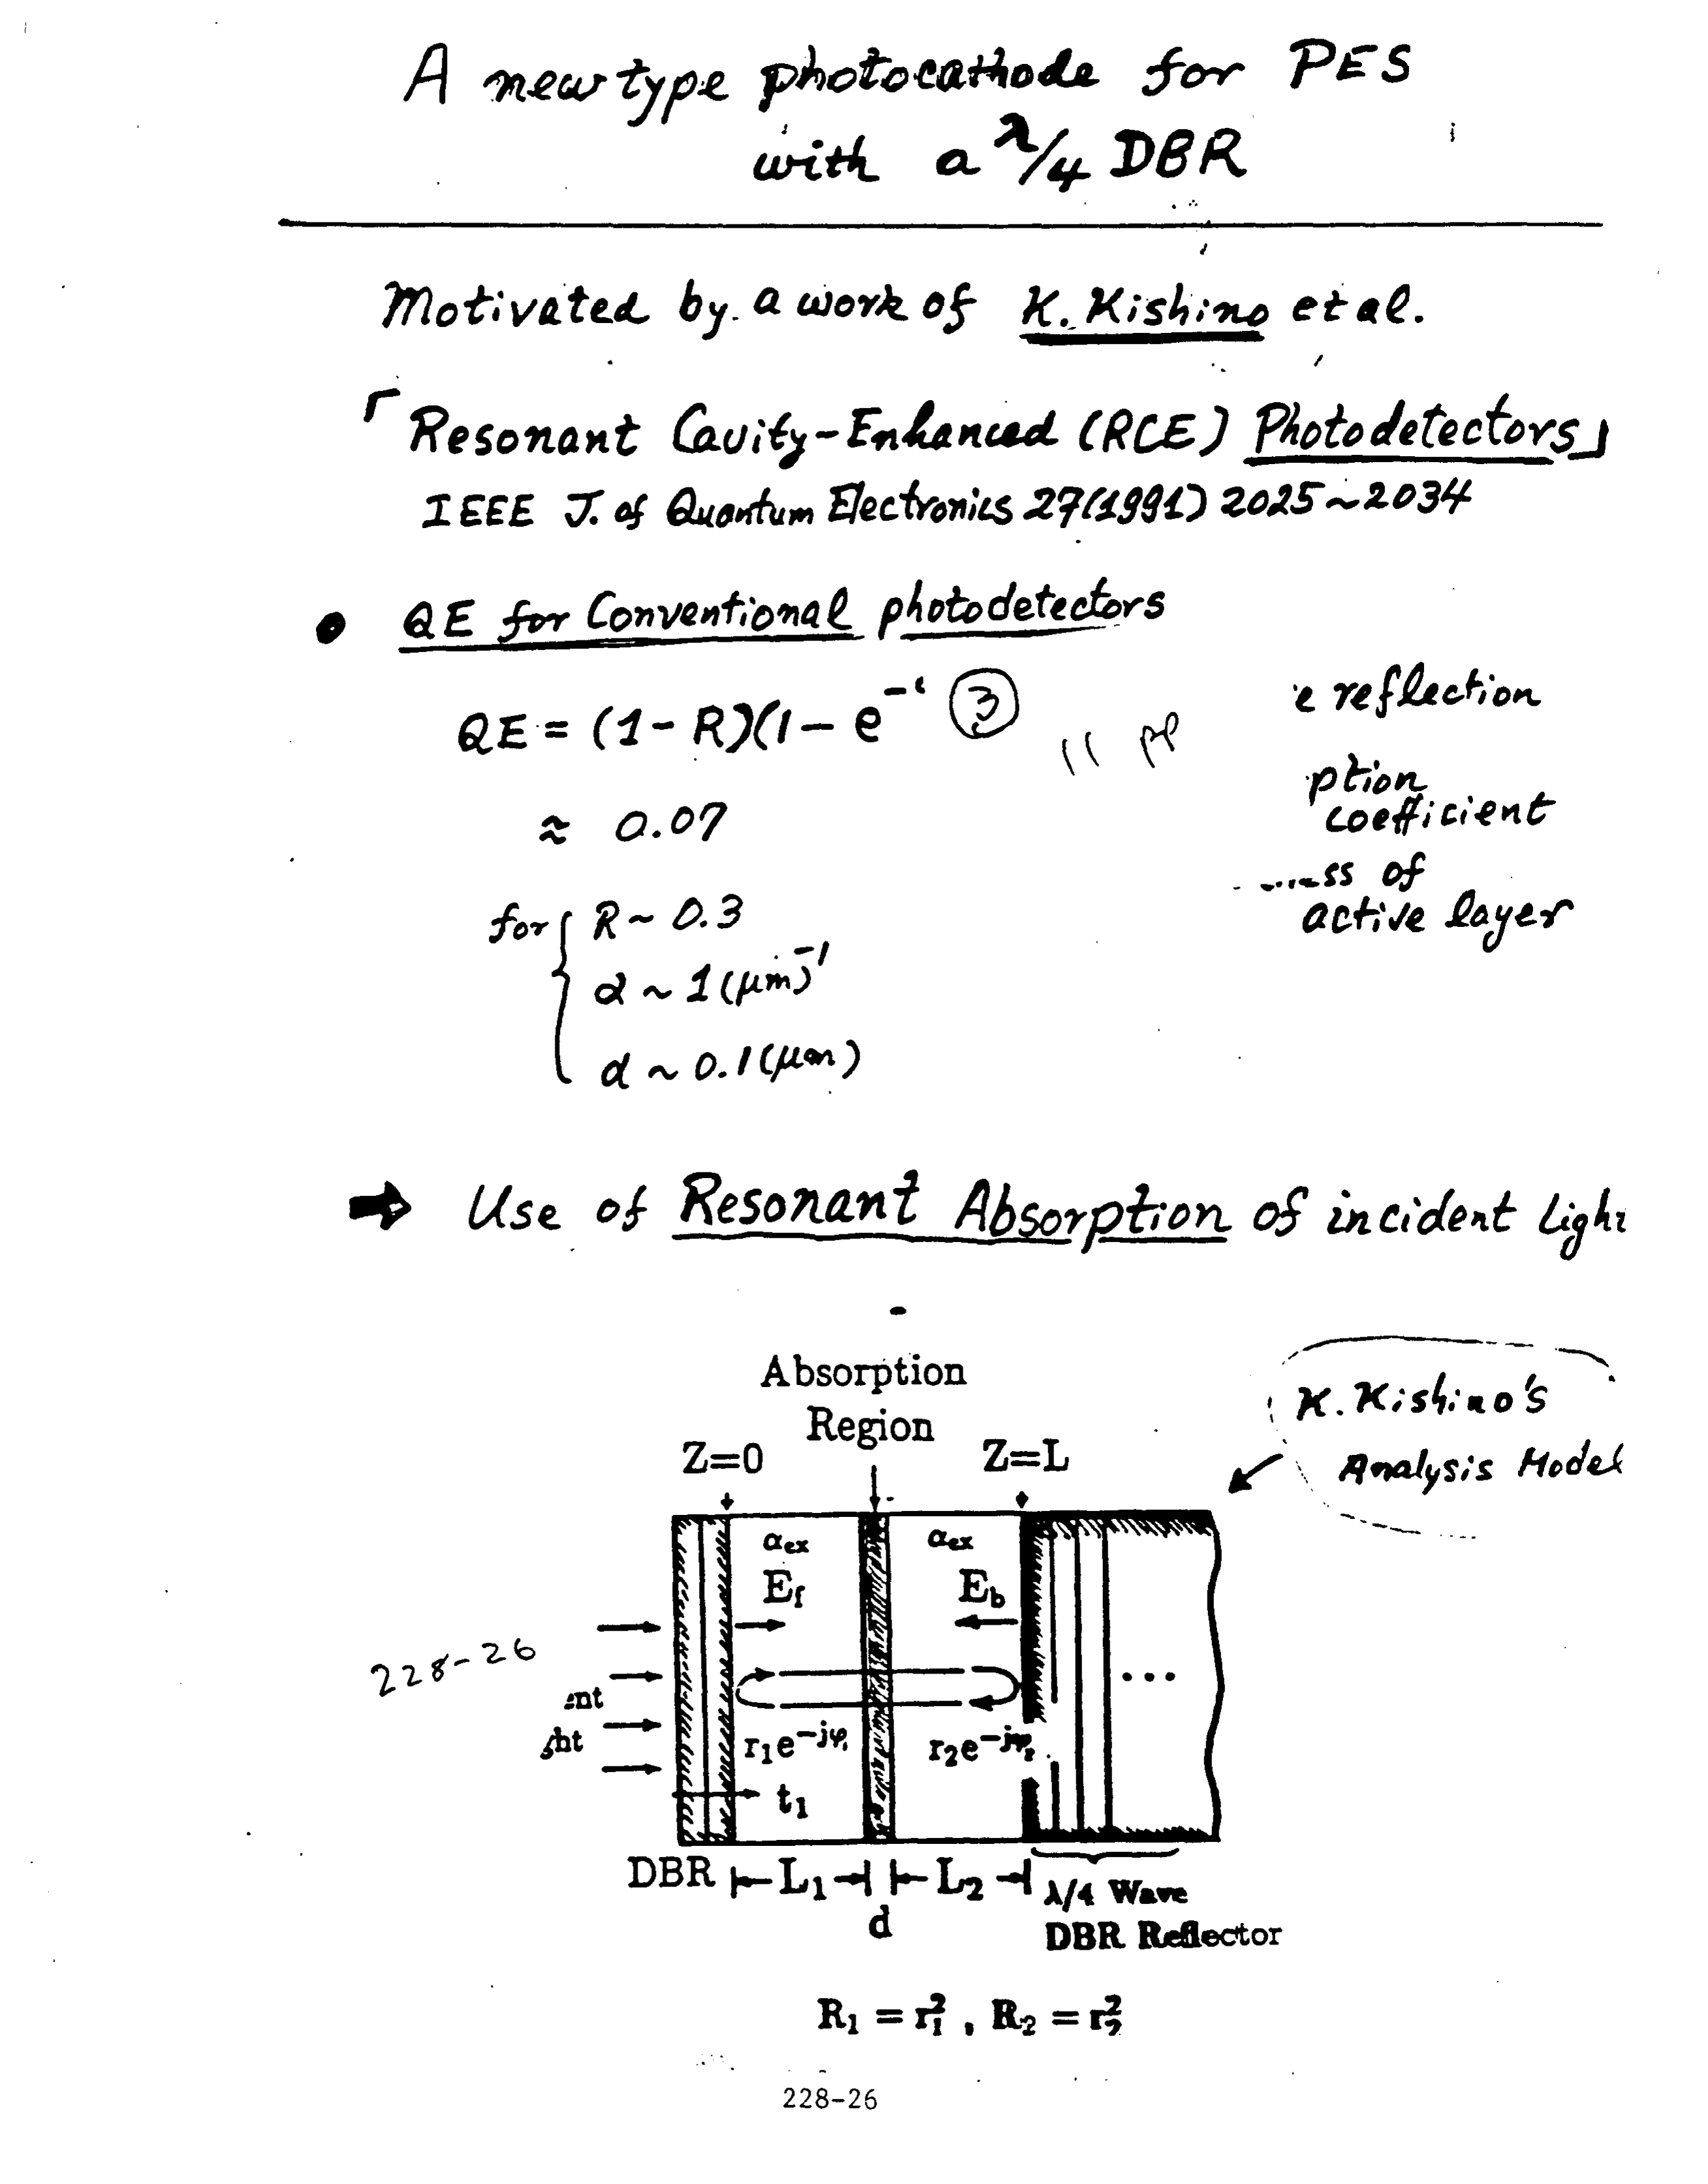 A new type photocathode for PES
with a λ/4 DBR
Motivated by a work of K. Kishino et al.
「Resonant Cavity-Enhanced (RCE) Photodetectors」
IEEE J. of Quantum Electronics 27(1991) 2025~2034
• QE for Conventional photodetectors
QE = (1-R)(1-e^- ③
11 pp
e reflection
≈ 0.07
ption
coefficient
ss of
active layer
for { R ~ 0.3
α ~ 1 (μm)^-1
d ~ 0.1 (μm)
➡ Use of Resonant Absorption of incident Light
Absorption
Region
Z=0
Z=L
K. Kishino's
Analysis Model
αex
αex
Ef
Eb
228-26
...
ent
ght
r1e^-jφ1
r2e^-jφ2
t1
DBR
L1
L2
d
λ/4 Wave
DBR Reflector
R1 = r1^2 , R2 = r2^2
228-26